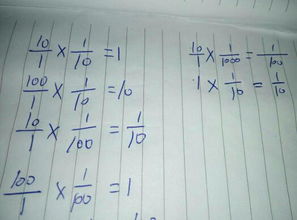 10/1 × 1/10 = 1
100/1 × 1/10 = 10
10/1 × 1/100 = 1/10
100/1 × 1/100 = 1
10/1 × 1/1000 = 1/100
1 × 1/10 = 1/10